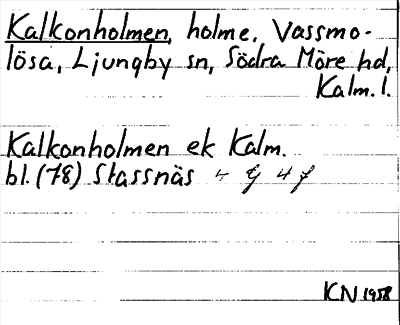 Kalkonholmen, holme, Vassmo-
lösa, Ljungby sn, Södra Möre hd,
Kalm. l.
Kalkonholmen ek Kalm.
bl. (78) Stassnäs 4 g 4 f
KN 1958